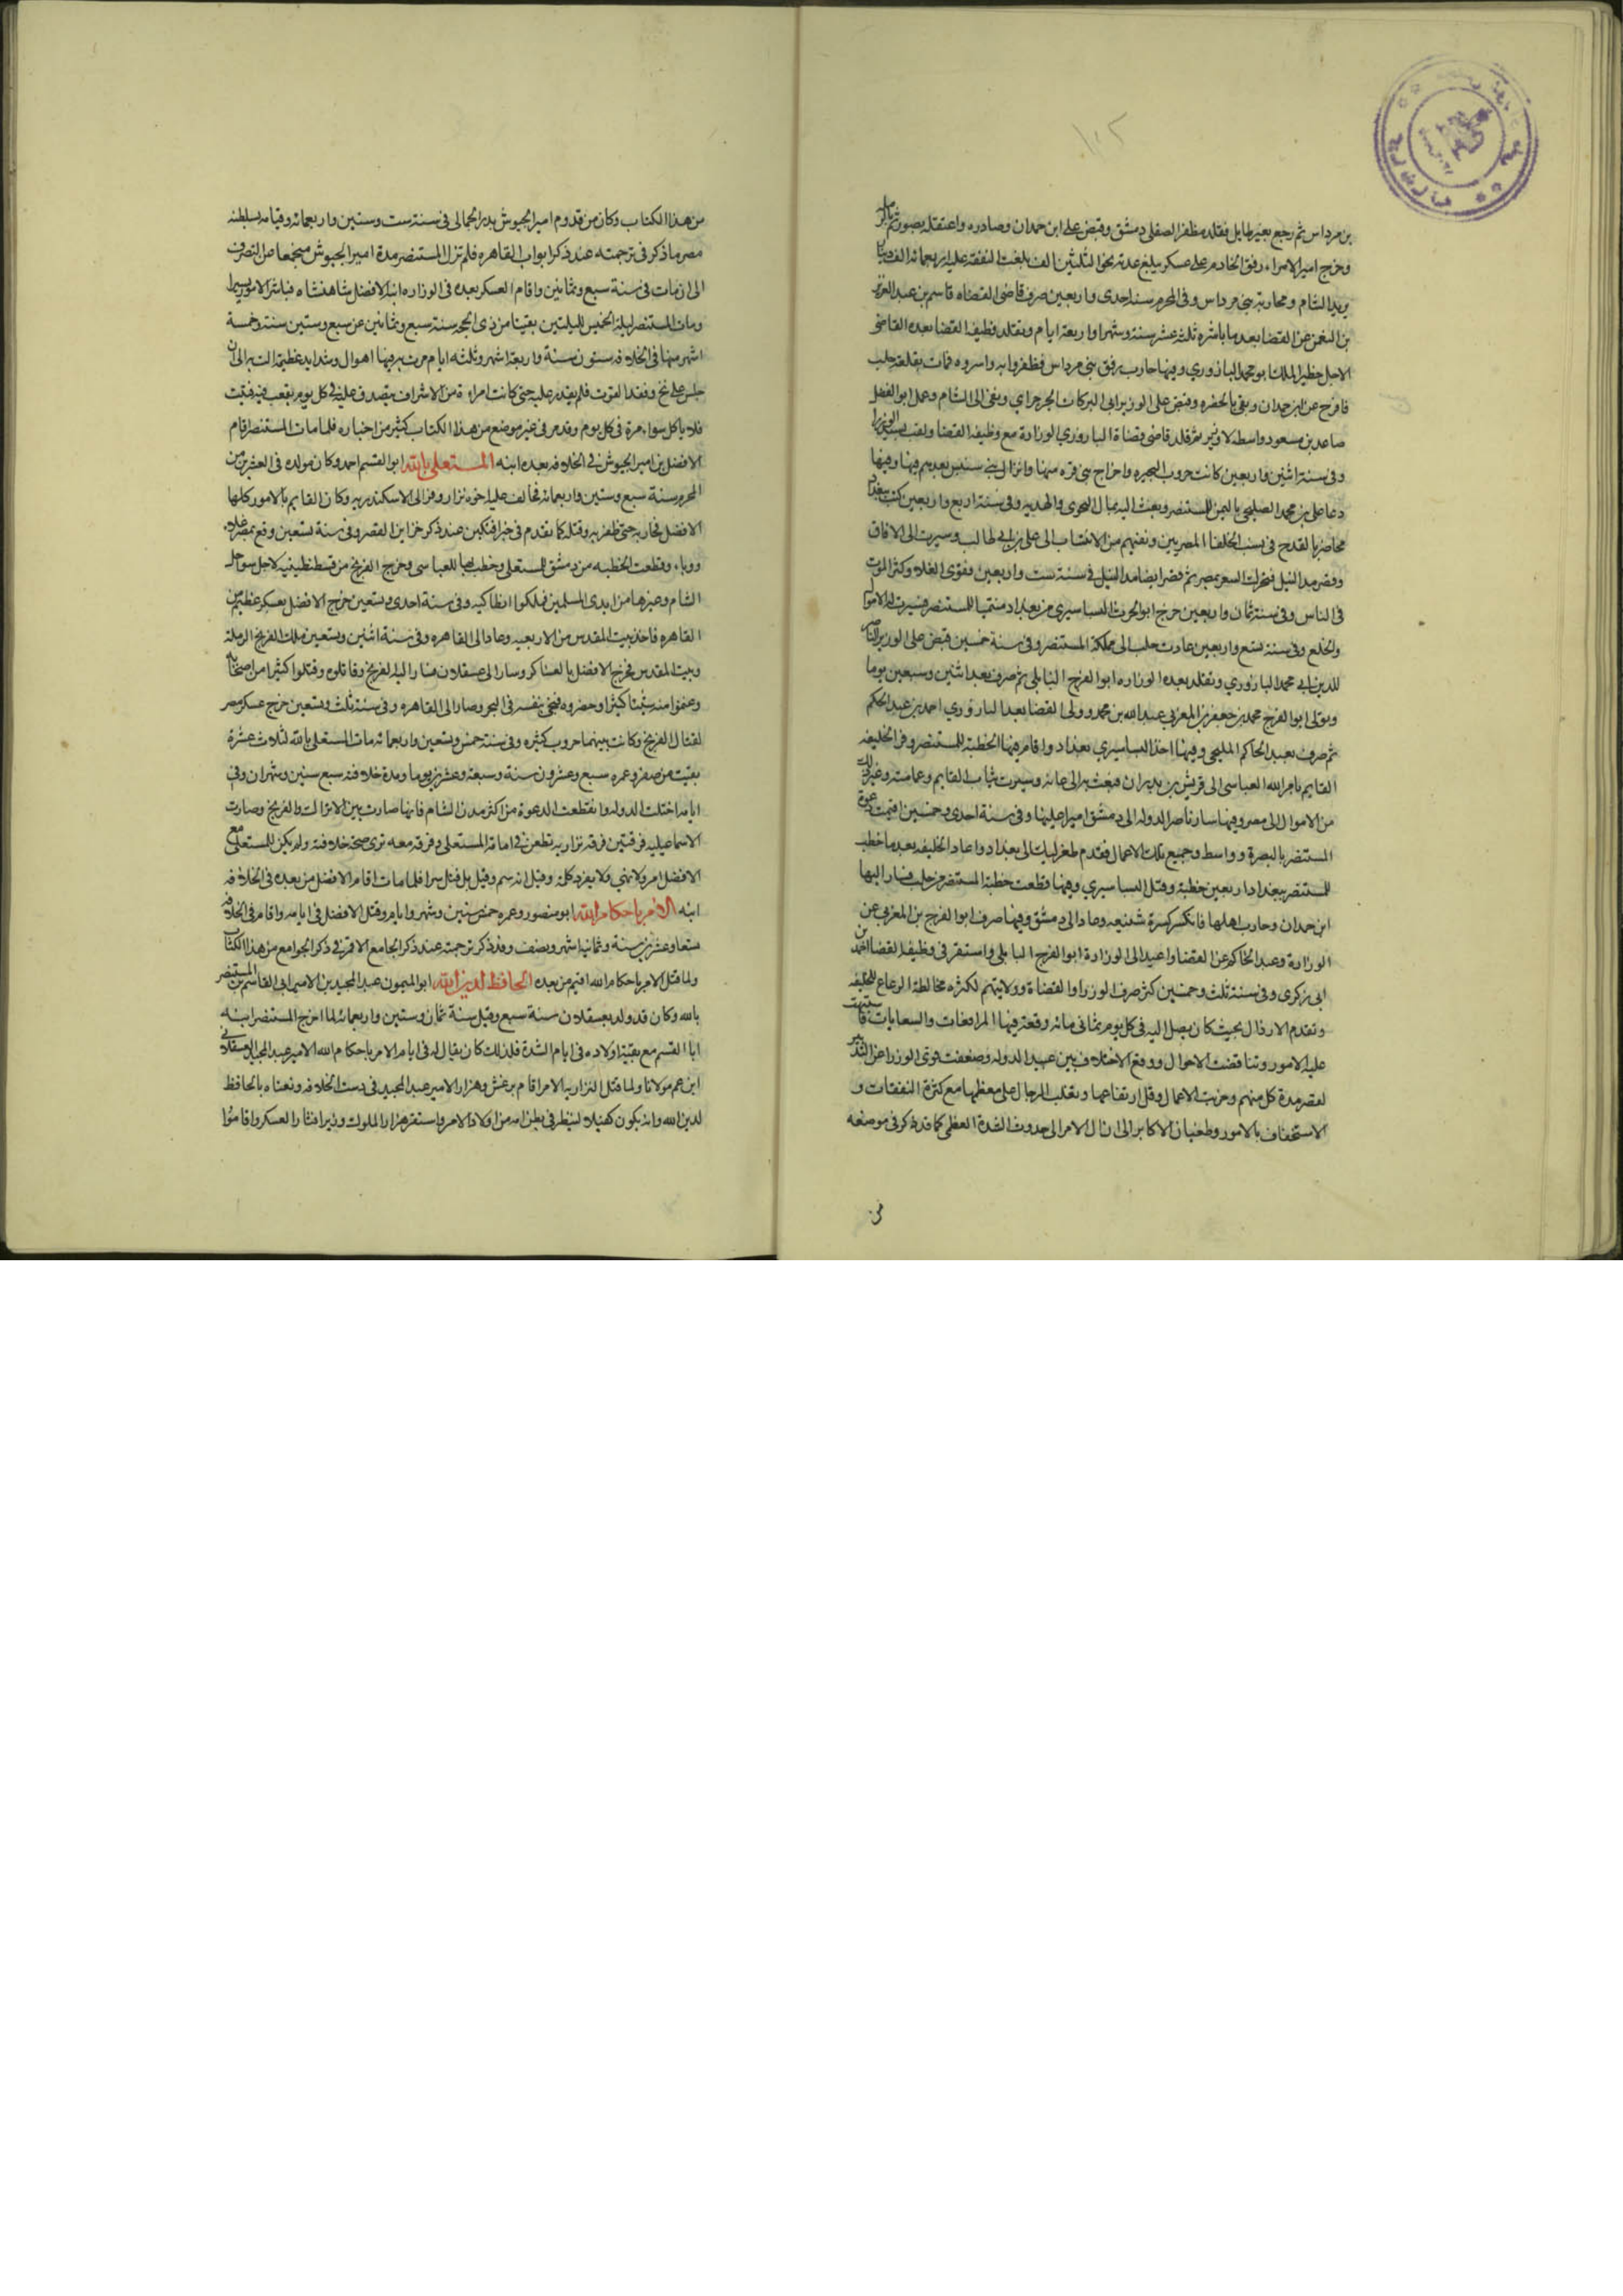 ١٠٢
بن مرداس ثم رجع بغير طايل فقلد مظفر الصقلي دمشق وقبض على ابن حمدان وصادره واعتقله بصور ثم بالرملة
وخرج امير الامراء رفق الخادم على عسكر يبلغ عدته نحو الثلثين الف بلغت النفقة عليه اربعمائة الف دينار
يريد الشام ومحاربة بني مرداس وفي المحرم سنة احدى واربعين صرف قاضي القضاه قاسم بن عبد العزيز
بن النعمن عن القضا بعد ما باشره ثلث عشر سنة وشهرا واربعة ايام وتقلد وظيفة القضا بعده القاضي
الاجل خطير الملك ابو محمد اليازوري وفيها حارب رفق بني مرداس فظفروا به واسروه فمات بقلعة حلب
فافرج عن ابن حمدان وبقي بالحضره وقبض على الوزير ابي البركات الجرجراي ونفي الى الشام وعمل ابو الفضل
صاعد بن مسعود واسطه لا وزير ثم قلد قاضي قضاة اليازوري الوزارة مع وظيفة القضا ولقب بسيد الوزرا
وفي سنة اثنين واربعين كانت حروب البحيره واخراج بني قره منها وانزال بني سنبس بعدهم فيها وفيها
دعا علي بن محمد الصليحي باليمن للمستنصر وبعث اليه بمال النجوى والهديه وفي سنة اربع واربعين كتب ببغداد
محاضر بالقدح في نسب الخلفا المصريين ونفيهم من الانتساب الى علي بن ابي طالب وسيرت الى الافاق
وقصر مد النيل فتحركت السعر بمصر ثم قصر ايضا مد النيل في سنة ست واربعين فقوي الغلا وكثر الموت
في الناس وفي سنة ثمان واربعين خرج ابو الحرث البساسيري من بغداد منتميا للمستنصر فسيرت له الاموال
والخلع وفي سنة تسع واربعين عادت حلب الى مملكة المستنصر وفي سنة خمسين قبض على الوزير الناصر
للدين ابي محمد اليازوري وتقلد بعده الوزاره ابو الفرج البابلي ثم صرف بعد اثنين وسبعين يوما
وتولى ابو الفرج محمد بن جعفر بن المغربي عبد الله بن محمد وولي القضا بعد اليازوري احمد بن عبد الحكم
ثم صرف بعبد الحاكم المليجي وفيها اخذ البساسيري بغداد واقام فيها الخطبة للمستنصر وفر الخليفه
القايم بامر الله العباسي الى قريش بن بدران فبعث به الى عانه وسيرت ثياب القايم وعمامته وغير ذلك
من الاموال الى مصر وفيها سار ناصر الدوله الى دمشق اميرا عليها وفي سنة احدى وخمسين اقيمت دعوة
المستنصر بالبصرة وواسط وجميع تلك الاعمال فقدم طغرلبك الى بغداد واعاد الخليفه بعد ما خطب
للمستنصر ببغداد اربعين خطبة وقتل البساسيري وفيها قطعت خطبة المستنصر من حلب فسار اليها
ابن حمدان وحارب اهلها فانكسر كسرة شنيعه وعاد الى دمشق وفيها صرف ابو الفرج بن المغربي عن
الوزارة وعبد الحاكم عن القضا واعيد الى الوزارة ابو الفرج البابلي واستقر في وظيفة القضا احمد بن
ابي زكري وفي سنة ثلث وخمسين كثر صرف الوزرا والقضاة وولايتهم لكثره مخالطة الرعاع للخليفه
وتقدم الارذال بحيث كان يصل اليه في كل يوم ثماني مائه رقعة فيها المرافعات والسعايات فاشتبهت
عليه الامور وتناقضت الاحوال ووقع الاختلاف بين عبيد الدوله وضعفت قوى الوزرا عن التدبير
لقصر مدة كل منهم وخربت الاعمال وقل ارتفاعها وتغلب الرجال على معظمها مع كثرة النفقات و
الاستخفاف بالامور وطغيان الاكابر الى ان ال الامر الى حدوث الشدة العظمى كما قد ذكر في موضعه
من
من هذا الكتاب وكان من قدوم امير الجيوش بدر الجمالي في سنة ست وستين واربعمائه وقيامه بسلطنة
مصر ما ذكر في ترجمته عند ذكر ابواب القاهره فلم تزل المستنصر مدة امير الجيوش ملجما عن التصرف
الى ان مات في سنة سبع وثمانين واقام العسكر بعده في الوزاره ابنه الافضل شاهنشاه فباشر الامور يسيرا
ومات المستنصر ليلة الخميس لليلتين بقيتا من ذي الحجه سنة سبع وثمانين عن سبع وستين سنة وخمسة
اشهر منها في الخلافه ستون سنة واربعة اشهر وثلثه ايام مرت به فيها اهوال وشدايد عظيمة الت به الى ان
جلس على نخ وفقد القوت فلم يقدر عليه حتى كانت امراة من الاشراف تتصدق عليه في كل يوم بقعب فيه فتيت
فلا ياكل سواه مرة في كل يوم وقد مر في غير موضع من هذا الكتاب كثير من اخباره فلما مات المستنصر اقام
الافضل بن امير الجيوش في الخلافه بعده ابنه المستعلي بالله ابو القسم احمد وكان مولده في العشرين من
المحرم سنة سبع وستين واربعمائه فخالف عليه اخوه نزار وفر الى الاسكندريه وكان القايم بالامور كلها
الافضل فحاربه حتى ظفر به وقتله كما تقدم في خبر افتكين عند ذكر خزاين القصر وفي سنة تسعين وقع بمصر غلاء
ووباء وقطعت الخطبه من دمشق للمستعلي وخطب بها للعباسي وخرج الفرنج من قسطنطينيه لاخذ سواحل
الشام وغيرها من ايدي المسلمين فملكوا انطاكيه وفي سنة احدى وتسعين خرج الافضل بعسكر عظيم من
القاهره فاخذ بيت المقدس من الارتقيه وعاد الى القاهره وفي سنة اثنين وتسعين ملك الفرنج الرملة
وبيت المقدس فخرج الافضل بالعساكر وسار الى عسقلان فسار اليه الفرنج وقاتلوه وقتلوا كثيرا من اصحابه
وغنموا منه شيئا كثيرا وحصروه فنجى بنفسه في البحر وصار الى القاهره وفي سنة ثلث وتسعين خرج عسكر مصر
لقتال الفرنج وكانت بينهما حروب كثيره وفي سنة خمس وتسعين واربعمائه مات المستعلي بالله لثلاث عشرة
بقيت من صفر وعمره سبع وعشرون سنة وسبعة وعشرين يوما ومدة خلافته سبع سنين وشهران وفي
ايامه اختلت الدوله وانقطعت الدعوة من اكثر مدن الشام فانها صارت بين الاتراك والفرنج وصارت
الاسماعيليه فرقتين فرقه نزاريه تطعن في امامة المستعلي وفرقه معه ترى صحة خلافته ولم يكن للمستعلي مع
الافضل امر ولا نهي ولا يعرف كلمه وقيل انه سم وقيل بل قتل سرا فلما مات اقام الافضل من بعده في الخلافه
ابنه الامر باحكام الله ابو منصور وعمره خمس سنين وشهر وايام وقتل الافضل في ايامه واقام في الخلافه
تسعا وعشرين سنة وثمانية اشهر ونصف وقد ذكر ترجمته عند ذكر الجامع الاقمر في ذكر الجوامع من هذا الكتاب
ولما قتل الامر باحكام الله اقيم من بعده الحافظ لدين الله ابو الميمون عبد المجيد بن الامير ابي القاسم بن المستنصر
بالله وكان قد ولد بعسقلان سنة سبع وقيل سنة ثمان وستين واربعمائه لما اخرج المستنصر ابنه
ابا القسم مع بقية اولاده في ايام الشدة فلذلك كان يقال له في ايام الامر باحكام الله الامير عبد المجيد العسقلاني
ابن عم مولانا ولما قتل النزاريه الامر اقام برغش وهزار الامير عبد المجيد في دست الخلافه ونعتاه بالحافظ
لدين الله وانه يكون كفيلا لمنتظر في بطن امه من اولاد الامر واستقر هزار الملوك وزيرا فثار العسكر واقاموا